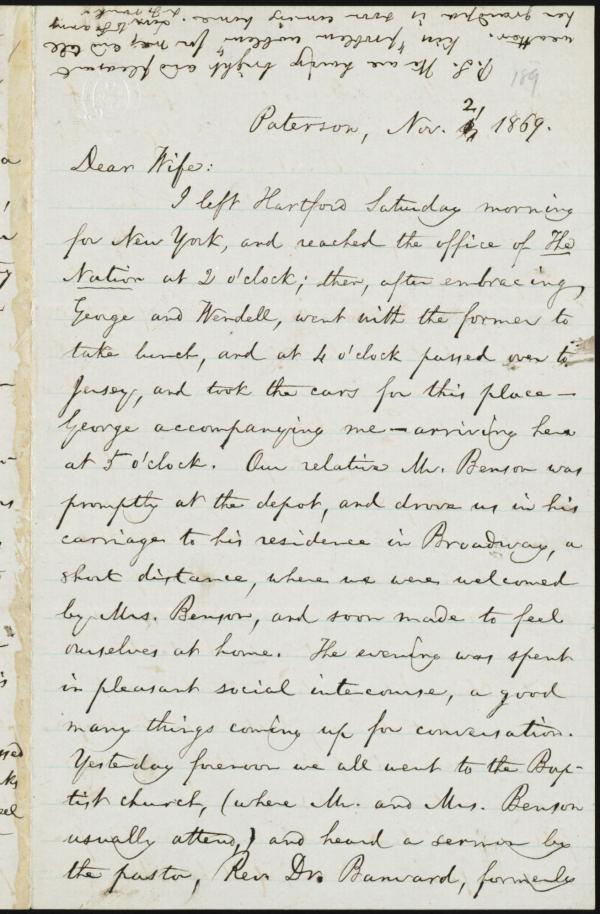 P. S. We are having bright and pleasant
weather. Kiss "problem wollem" for me, and tell
her grandpa is soon coming home. Love to Fanny
& Frank
189
Paterson, Nov. 21, 1869.
Dear Wife:
I left Hartford Saturday morning
for New York, and reached the office of The
Nation at 2 o'clock; then, after embracing
George and Wendell, went with the former to
take lunch, and at 4 o'clock passed over to
Jersey, and took the cars for this place —
George accompanying me — arriving here
at 5 o'clock. Our relative Mr. Benson was
promptly at the depot, and drove us in his
carriage to his residence in Broadway, a
short distance, where we were welcomed
by Mrs. Benson, and soon made to feel
ourselves at home. The evening was spent
in pleasant social intercourse, a good
many things coming up for conversation.
Yesterday forenoon we all went to the Bap-
tist church, (where Mr. and Mrs. Benson
usually attend,) and heard a sermon by
the pastor, Rev. Dr. Banvard, formerly